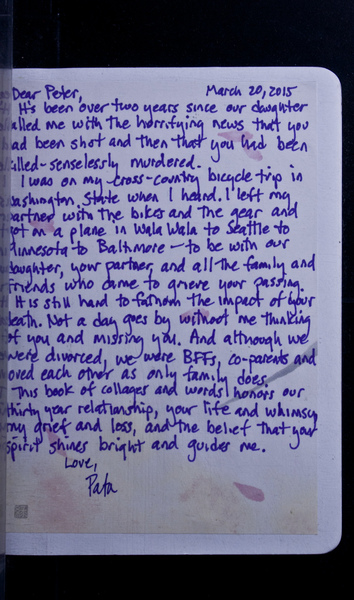 Dear Peter, March 20, 2015
It's been over two years since our daughter
called me with the horrifying news that you
had been shot and then that you had been
killed-senselessly murdered.
I was on my cross-country bicycle trip in
Washington State when I heard. I left my
partner with the bikes and the gear and
got on a plane in Wala Wala to Seattle to
Minnesota to Baltimore - to be with our
daughter, your partner, and all the family and
friends who came to grieve your passing.
It is still hard to fathom the impact of your
death. Not a day goes by without me thinking
of you and missing you. And although we
were divorced, we were BFFs, co-parents and
loved each other as only family does.
This book of collages and words honors our
thirty year relationship, your life and whimsy,
my grief and loss, and the belief that your
spirit shines bright and guides me.
Love,